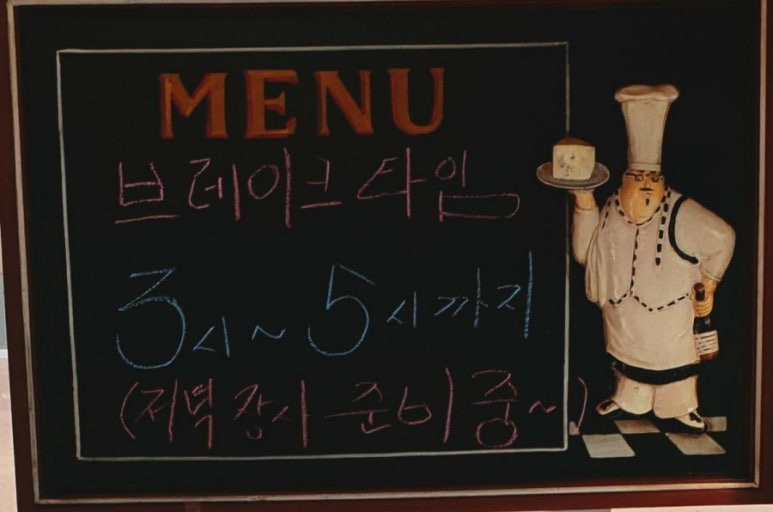 MENU
브레이크타임
3시~5시까지
(저녁 장사 준비중~)